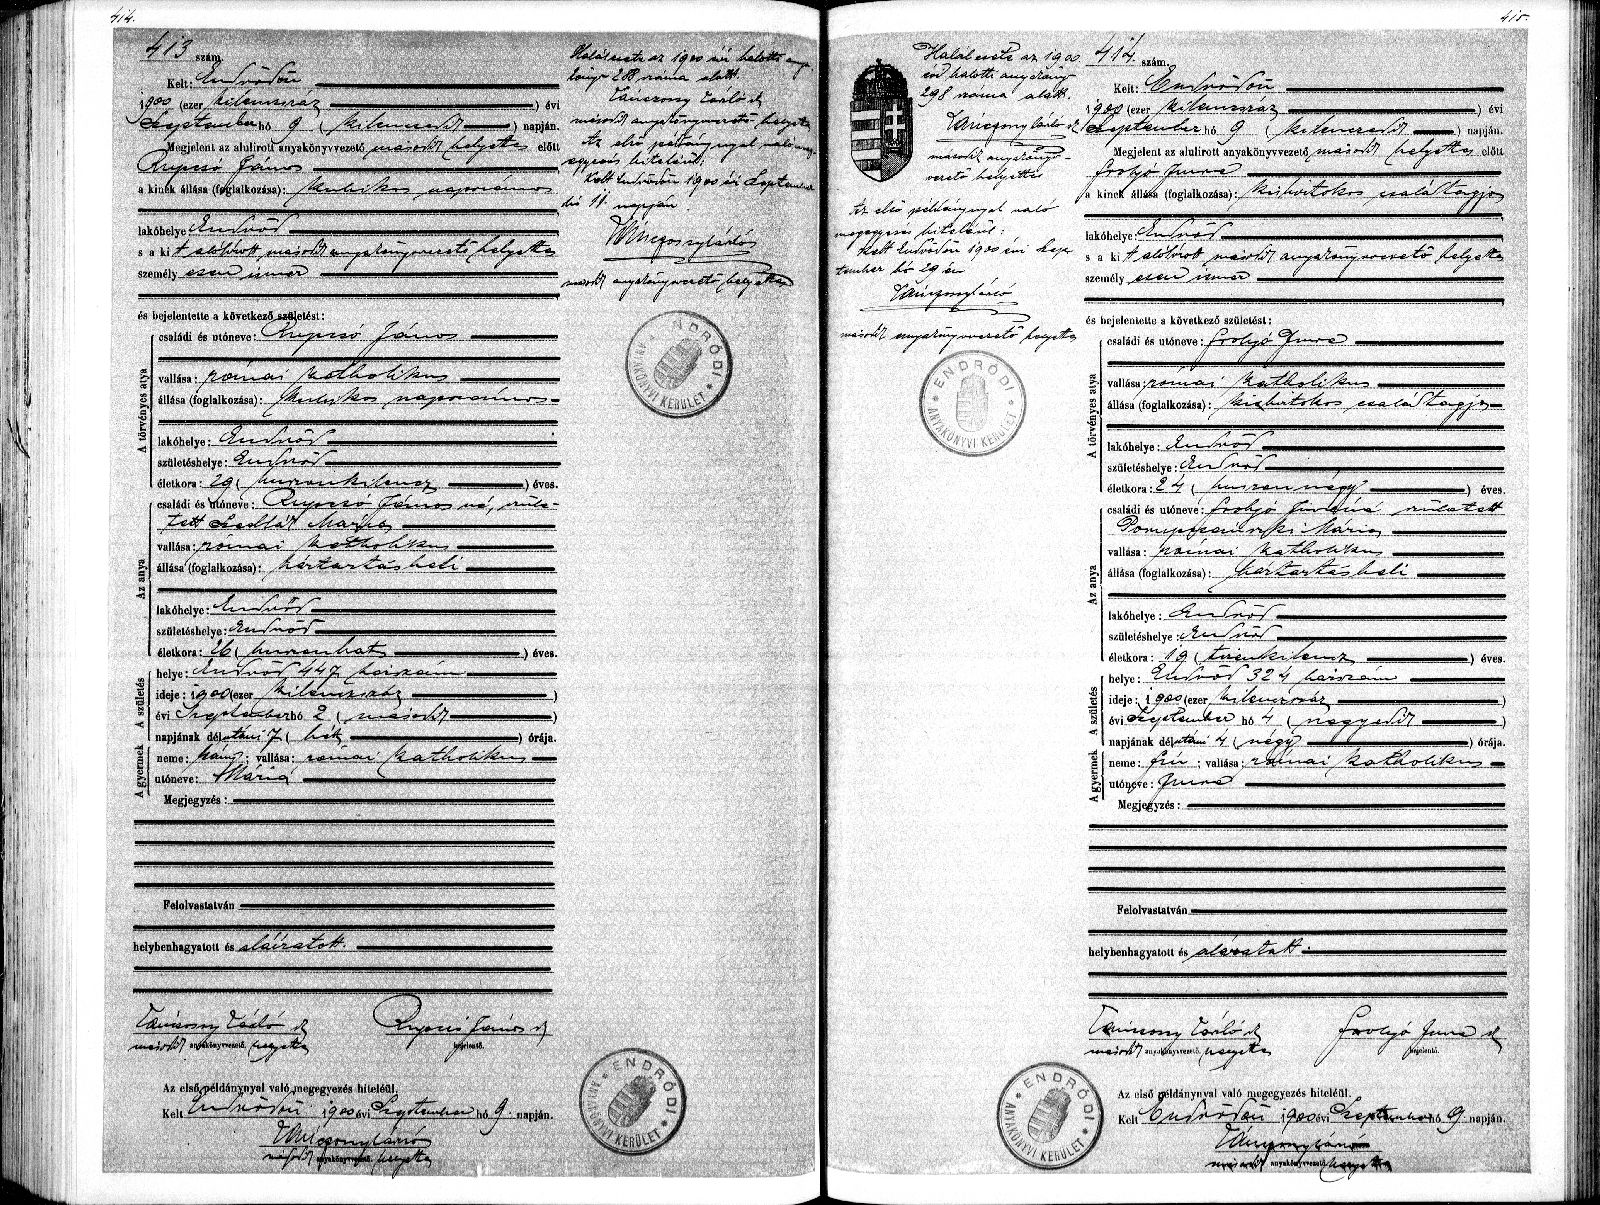 414.
413 szám.
Kelt: Endrődön
1900 (ezer kilenczszáz) évi
Szeptember hó 9 (kilenczedik) napján.
Megjelent az alulirott anyakönyvvezető másodh helyettes előtt
Rupcsó János
a kinek állása (foglalkozása): kubikos napszámos
lakóhelye Endrőd
s a kit alólírott másodh anyakönyvvezető helyettes
személyesen ismer
és bejelentette a következő születést:
A törvényes atya
családi és utóneve: Rupcsó János
vallása: római katholikus
állása (foglalkozása): kubikos napszámos
lakóhelye: Endrőd
születéshelye: Endrőd
életkora: 29 (huszonkilencz) éves.
Az anya
családi és utóneve: Rupcsó Jánosné, szüle-
tett Szedlák Mária
vallása: római katholikus
állása (foglalkozása): háztartásbeli
lakóhelye: Endrőd
születéshelye: Endrőd
életkora: 26 (huszonhat) éves.
A születés
helye: Endrőd 447 házszám
ideje: 1900 (ezer kilenczszáz)
évi Szeptember hó 2 (második)
napjának délutáni 7 (hét) órája.
A gyermek
neme: leány; vallása: római katholikus
utóneve: Mária
Megjegyzés:
Felolvastatván
helybenhagyatott és aláíratott.
Vánczony László sk
másodh anyakönyvvezető. helyettes
Rupcsó János sk
bejelentő.
Az első példánynyal való megegyezés hiteléül.
Kelt Endrődön 1900 évi Szeptember hó 9. napján.
másodh anyakönyvvezető. helyettes
Halálesete az 1900 évi halotti anya
könyv 288 száma alatt.
másodh anyakönyvvezető helyettes
Az első példánynyal való meg-
egyezés hiteléül:
Kelt Endrődön 1900 évi Szeptember
hó 11. napján.
másodh anyakönyvvezető helyettes
ENDRŐDI ANYAKÖNYVI KERÜLET
ENDRŐDI ANYAKÖNYVI KERÜLET
415.
Halálesete az 1900
évi halotti anyakönyv
298 száma alatt.
másodh anyakönyv-
vezető helyettes
Az első példánynyal való
megegyezés hiteléül:
Kelt Endrődön 1900 évi Szep
tember hó 29 én
másodh anyakönyvvezető helyettes
ENDRŐDI ANYAKÖNYVI KERÜLET
ENDRŐDI ANYAKÖNYVI KERÜLET
414. szám.
Kelt: Endrődön
1900 (ezer kilenczszáz) évi
Szeptember hó 9 (kilenczedik) napján.
Megjelent az alulirott anyakönyvvezető másodh helyettes előtt
Frolyó Imre
a kinek állása (foglalkozása): kisbirtokos családtagja
lakóhelye Endrőd
s a kit alólírott másodh anyakönyvvezető helyettes
személyesen ismer
és bejelentette a következő születést:
A törvényes atya
családi és utóneve: Frolyó Imre
vallása: római katholikus
állása (foglalkozása): kisbirtokos családtagja
lakóhelye: Endrőd
születéshelye: Endrőd
életkora: 24 (huszonnégy) éves.
Az anya
családi és utóneve: Frolyó Imréné született
Mária
vallása: római katholikus
állása (foglalkozása): háztartásbeli
lakóhelye: Endrőd
születéshelye: Endrőd
életkora: 19 (tizenkilencz) éves.
A születés
helye: Endrőd 324 házszám
ideje: 1900 (ezer kilenczszáz)
évi Szeptember hó 4 (negyedik)
napjának délutáni 4 (négy) órája.
A gyermek
neme: fiu; vallása: római katholikus
utóneve: Imre
Megjegyzés:
Felolvastatván
helybenhagyatott és aláíratott.
Vánczony László sk
másodh anyakönyvvezető. helyettes
Frolyó Imre sk
bejelentő.
Az első példánynyal való megegyezés hiteléül.
Kelt Endrődön 1900 évi Szeptember hó 9. napján.
másodh anyakönyvvezető. helyettes